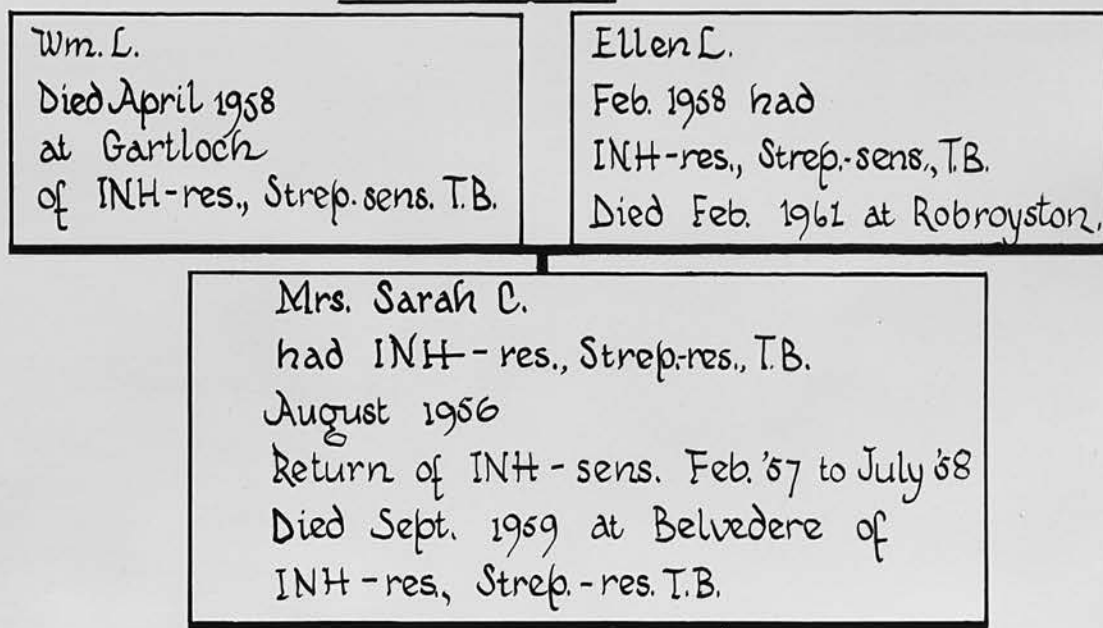 Wm. L.
Died April 1958
at Gartloch
of INH-res., Strep. sens. T.B.
Ellen L.
Feb. 1958 had
INH-res., Strep.-sens., T.B.
Died Feb. 1961 at Robroyston.
Mrs. Sarah C.
had INH-res., Strep.-res., T.B.
August 1956
Return of INH-sens. Feb. '57 to July '58
Died Sept. 1959 at Belvedere of
INH-res., Strep.-res. T.B.